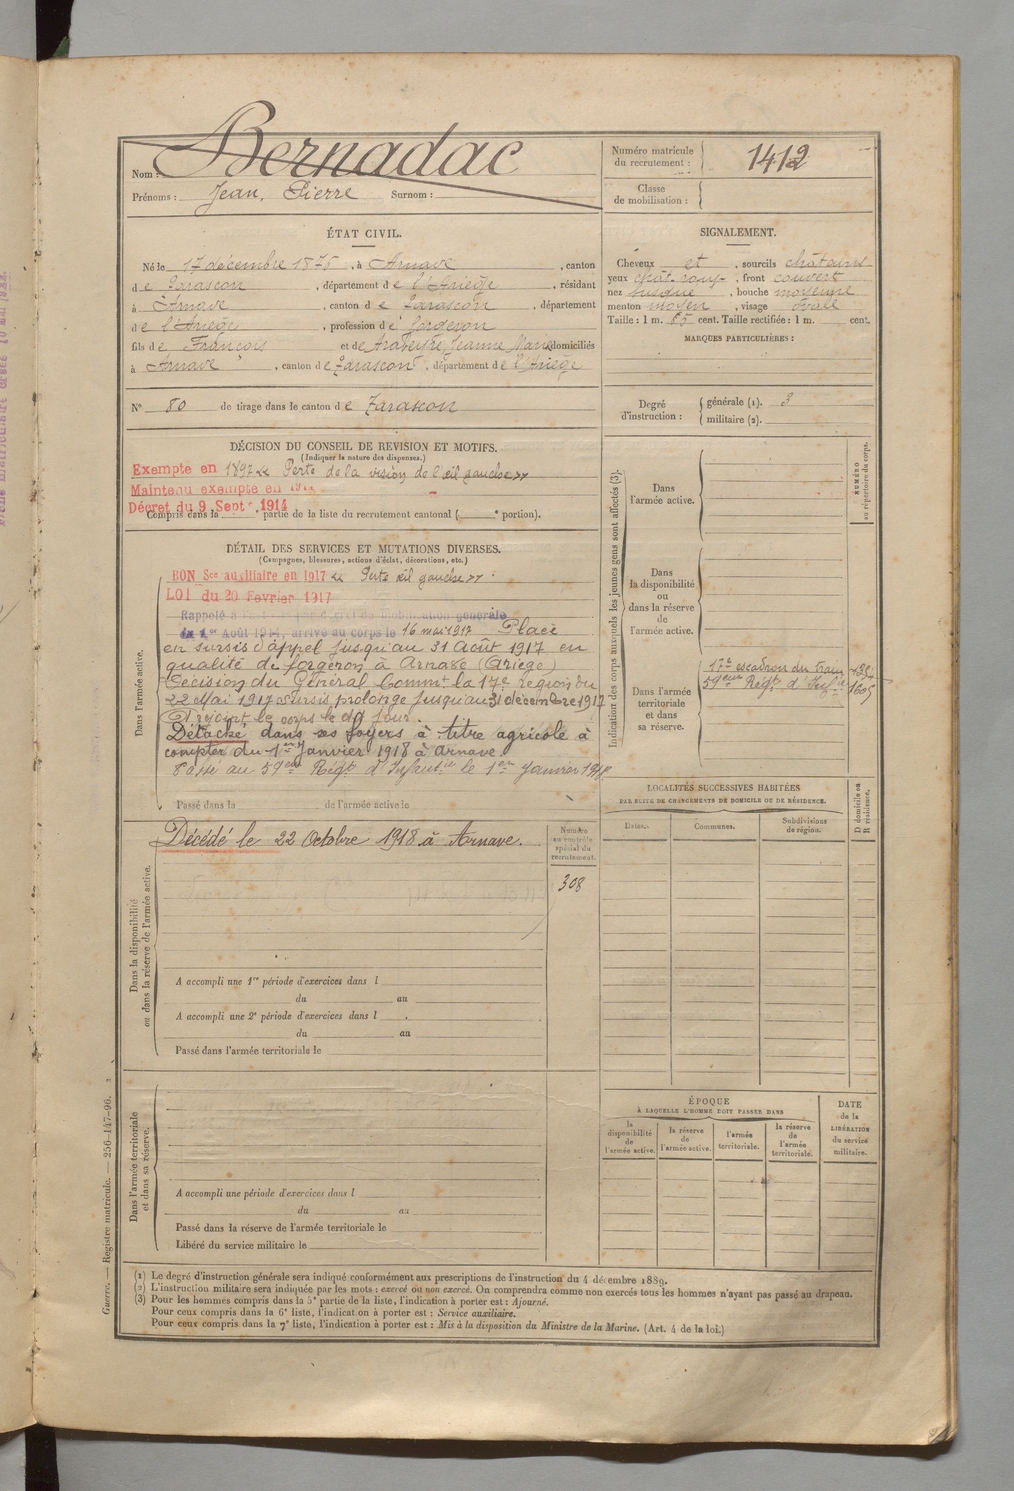 Nom : Bernadac
Prénoms : Jean, Pierre Surnom :
Numéro matricule du recrutement : 1412
Classe de mobilisation :
ÉTAT CIVIL.
Né le 17 décembre 1876, à Arnave, canton
de Tarascon, département de l'Ariège, résidant
à Arnave, canton de Tarascon, département
de l'Ariège, profession de forgeron
fils de François et de Jeanne Marie domiciliés
à Arnave, canton de Tarascon, département de l'Ariège
N° 80 de tirage dans le canton de Tarascon
SIGNALEMENT.
Cheveux et, sourcils châtains
yeux chât. roux, front couvert
nez busqué, bouche moyenne
menton moyen, visage ovale
Taille : 1 m. 65 cent. Taille rectifiée : 1 m. cent.
MARQUES PARTICULIÈRES :
Degré d'instruction : générale (1). 3
militaire (2).
DÉCISION DU CONSEIL DE REVISION ET MOTIFS.
(Indiquer la nature des dispenses.)
Exempté en 1897 « Perte de la vision de l'œil gauche »
Maintenu exempté en 1914
Décret du 9 Septe 1914
Compris dans la partie de la liste du recrutement cantonal ( e portion).
DÉTAIL DES SERVICES ET MUTATIONS DIVERSES.
(Campagnes, blessures, actions d'éclat, décorations, etc.)
Dans l'armée active.
BON Sce auxiliaire en 1917 « Perte œil gauche »
LOI du 20 Fevrier 1917
Rappelé à mobilisation générale
du 1er Août 1914, arrivé au corps le 16 mai 1917 Placé
en sursis d'appel jusqu'au 31 Août 1917 en
qualité de forgeron à Arnave (Ariège)
Décision du Général Commt la 17e région du
22 Mai 1917 sursis prolongé jusqu'au 31 décembre 1917
A rejoint le corps le dit jour.
Détaché dans ses foyers à titre agricole à
compter du 1er Janvier 1918 à Arnave
Passé au 59eme Régt d'Infantie le 1er Janvier 1918
Passé dans la de l'armée active le
Indication des corps auxquels les jeunes gens sont affectés (3).
NUMÉRO au répertoire du corps.
Dans l'armée active.
Dans la disponibilité ou dans la réserve de l'armée active.
Dans l'armée territoriale et dans sa réserve.
17e escadron du train
59eme Régt d'Infie 1605
LOCALITÉS SUCCESSIVES HABITÉES
PAR SUITE DE CHANGEMENTS DE DOMICILE OU DE RÉSIDENCE.
Dates. Communes. Subdivisions de région.
D domicile ou R résidence.
Dans la disponibilité ou dans la réserve de l'armée active.
Décédé le 22 Octobre 1918 à Arnave.
Numéro au contrôle spécial du recrutement.
308
A accompli une 1re période d'exercices dans l
du au
A accompli une 2e période d'exercices dans l
du au
Passé dans l'armée territoriale le
Dans l'armée territoriale et dans sa réserve.
A accompli une période d'exercices dans l
du au
Passé dans la réserve de l'armée territoriale le
Libéré du service militaire le
ÉPOQUE
À LAQUELLE L'HOMME DOIT PASSER DANS
la disponibilité de l'armée active.
la réserve de l'armée active.
l'armée territoriale.
la réserve de l'armée territoriale.
DATE de la LIBÉRATION du service militaire.
(1) Le degré d'instruction générale sera indiqué conformément aux prescriptions de l'instruction du 4 décembre 1889.
(2) L'instruction militaire sera indiquée par les mots : exercé ou non exercé. On comprendra comme non exercés tous les hommes n'ayant pas passé au drapeau.
(3) Pour les hommes compris dans la 5e partie de la liste, l'indication à porter est : Ajourné.
Pour ceux compris dans la 6e liste, l'indication à porter est : Service auxiliaire.
Pour ceux compris dans la 7e liste, l'indication à porter est : Mis à la disposition du Ministre de la Marine. (Art. 4 de la loi.)
Guerre. — Registre matricule. — 256-147-96.